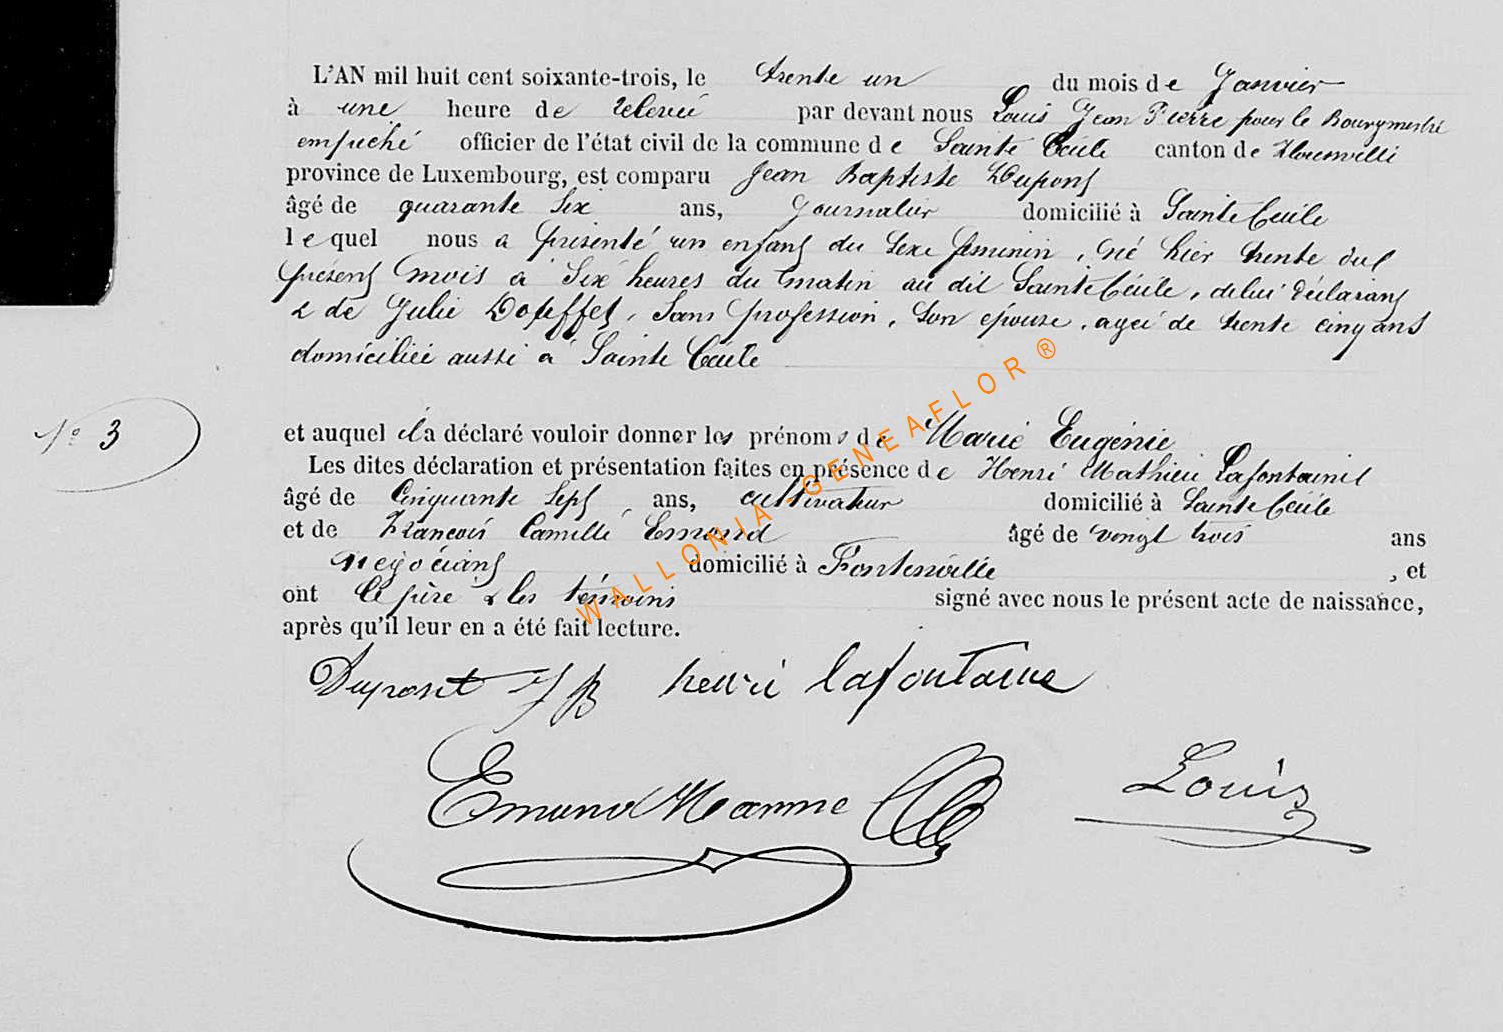 L'AN mil huit cent soixante-trois, le trente un du mois de Janvier
à une heure de relevée par devant nous Louis Jean Pierre pour le Bourgmestre
empêché officier de l'état civil de la commune de Sainte Cécile canton de Florenville
province de Luxembourg, est comparu Jean Baptiste Dupont
âgé de quarante six ans, Journalier domicilié à Sainte Cécile
lequel nous a présenté un enfant du sexe féminin, né hier trente du
présent mois à six heures du matin au dit Sainte Cécile, de lui déclarant
& de Julie, sans profession, son épouse, agée de trente cinq ans
domiciliée aussi à Sainte Cécile
N° 3
et auquel il a déclaré vouloir donner les prénoms de Marie Eugénie
Les dites déclaration et présentation faites en présence de Henri Mathieu Lafontaine
âgé de Cinquante Sept ans, cultivateur domicilié à Sainte Cécile
et de Francois Camille Emond âgé de vingt trois ans
négociant domicilié à Fontenoille, et
ont le père & les témoins signé avec nous le présent acte de naissance,
après qu'il leur en a été fait lecture.
Dupont JB henri lafontaine
Emond
Louis
WALLONIA - GENEAFLOR ®